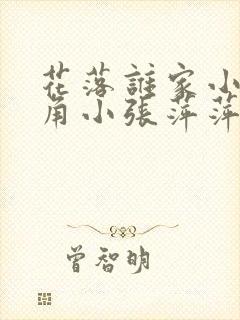 花落誰家小
角小張萍萍
曾智明